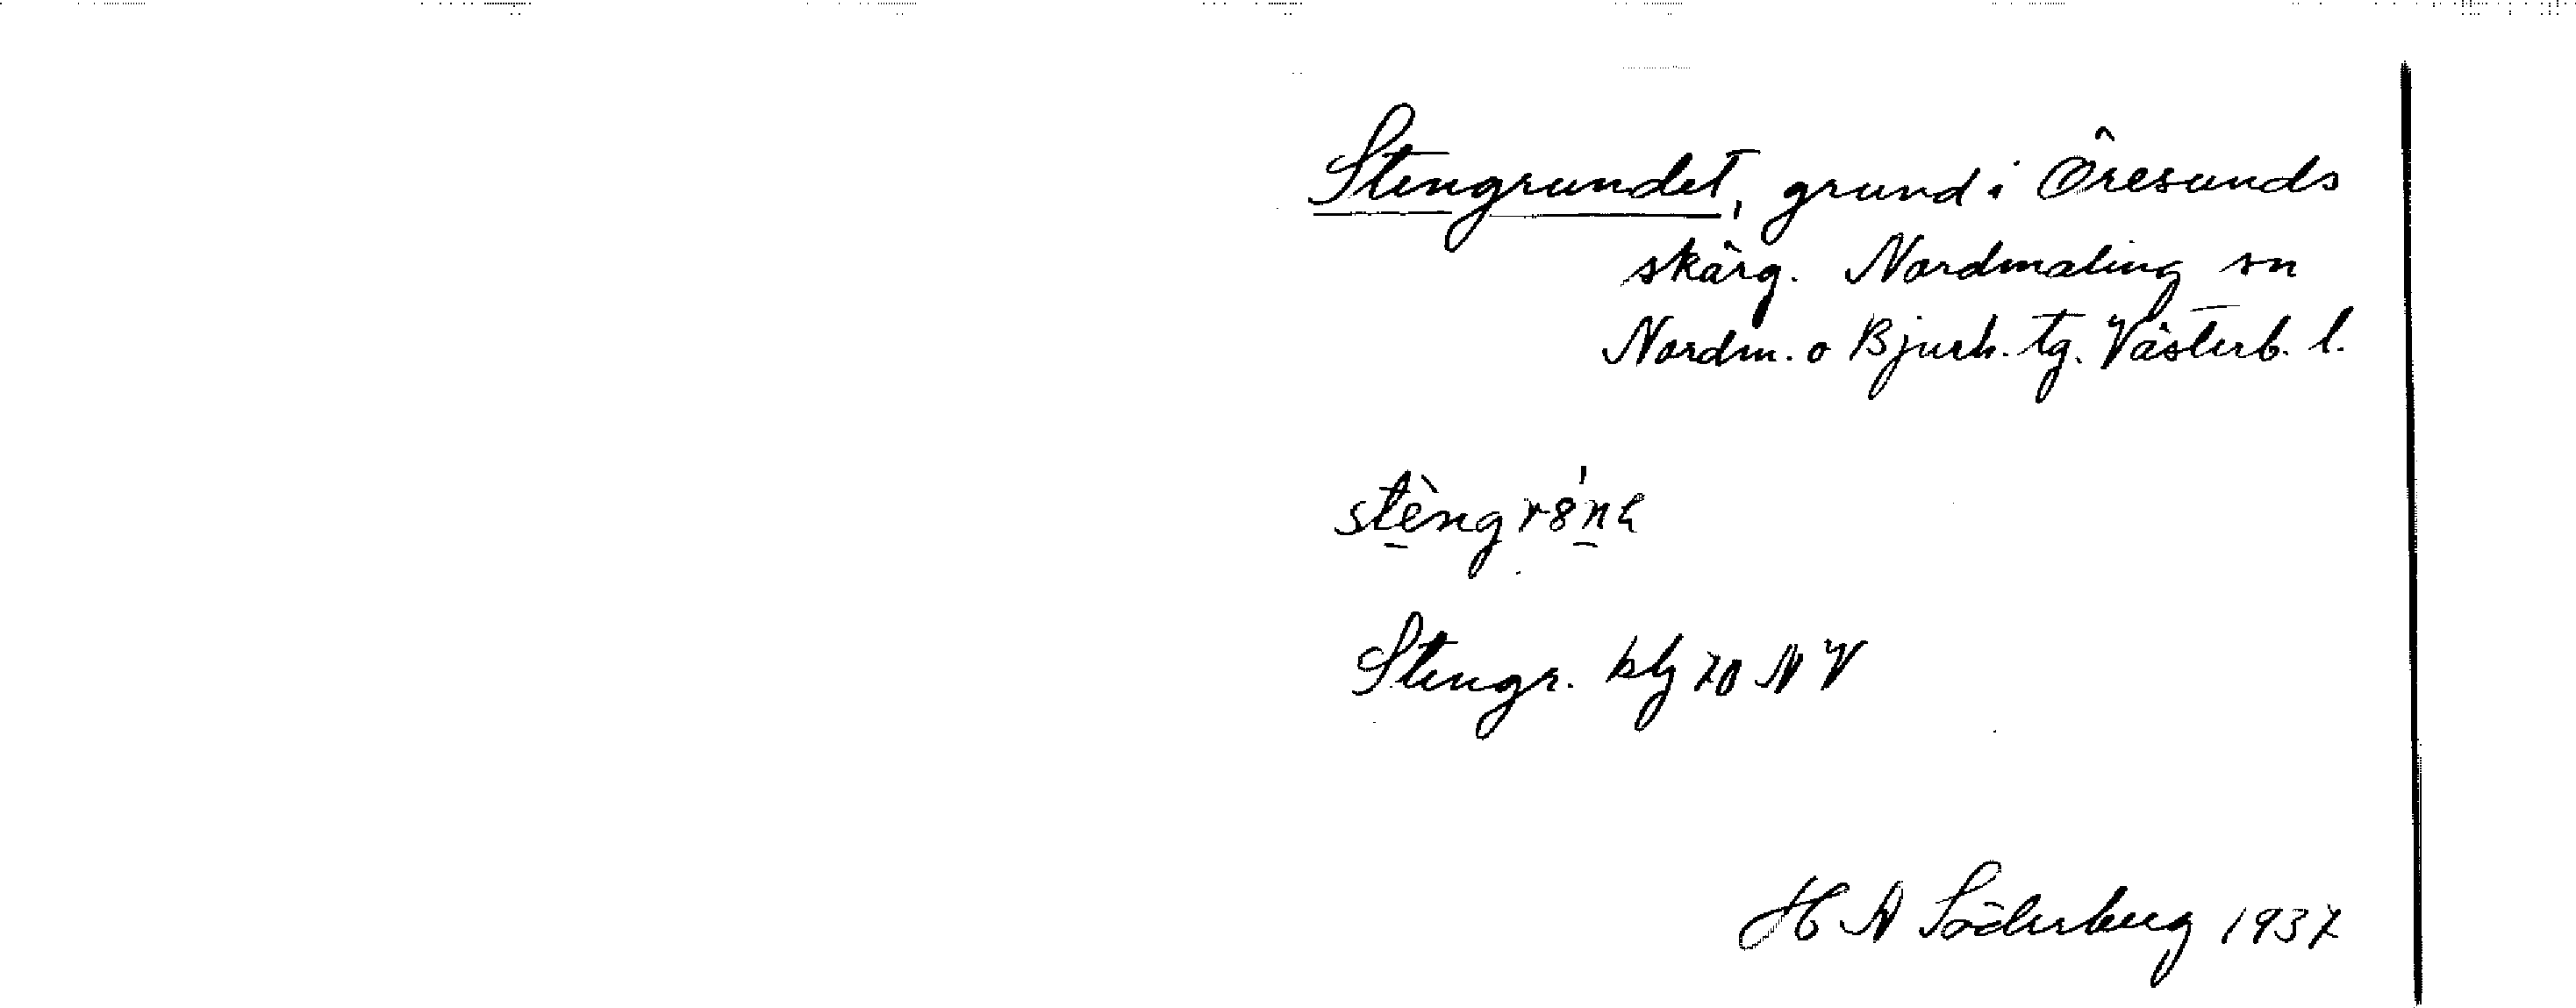 Stengrundet, grund i Öresunds
skärg. Nordmaling sn
Nordm. o Bjurh. tg. Västerb. l.
Stengr. blz 70 NV
H A Söderberg 1937